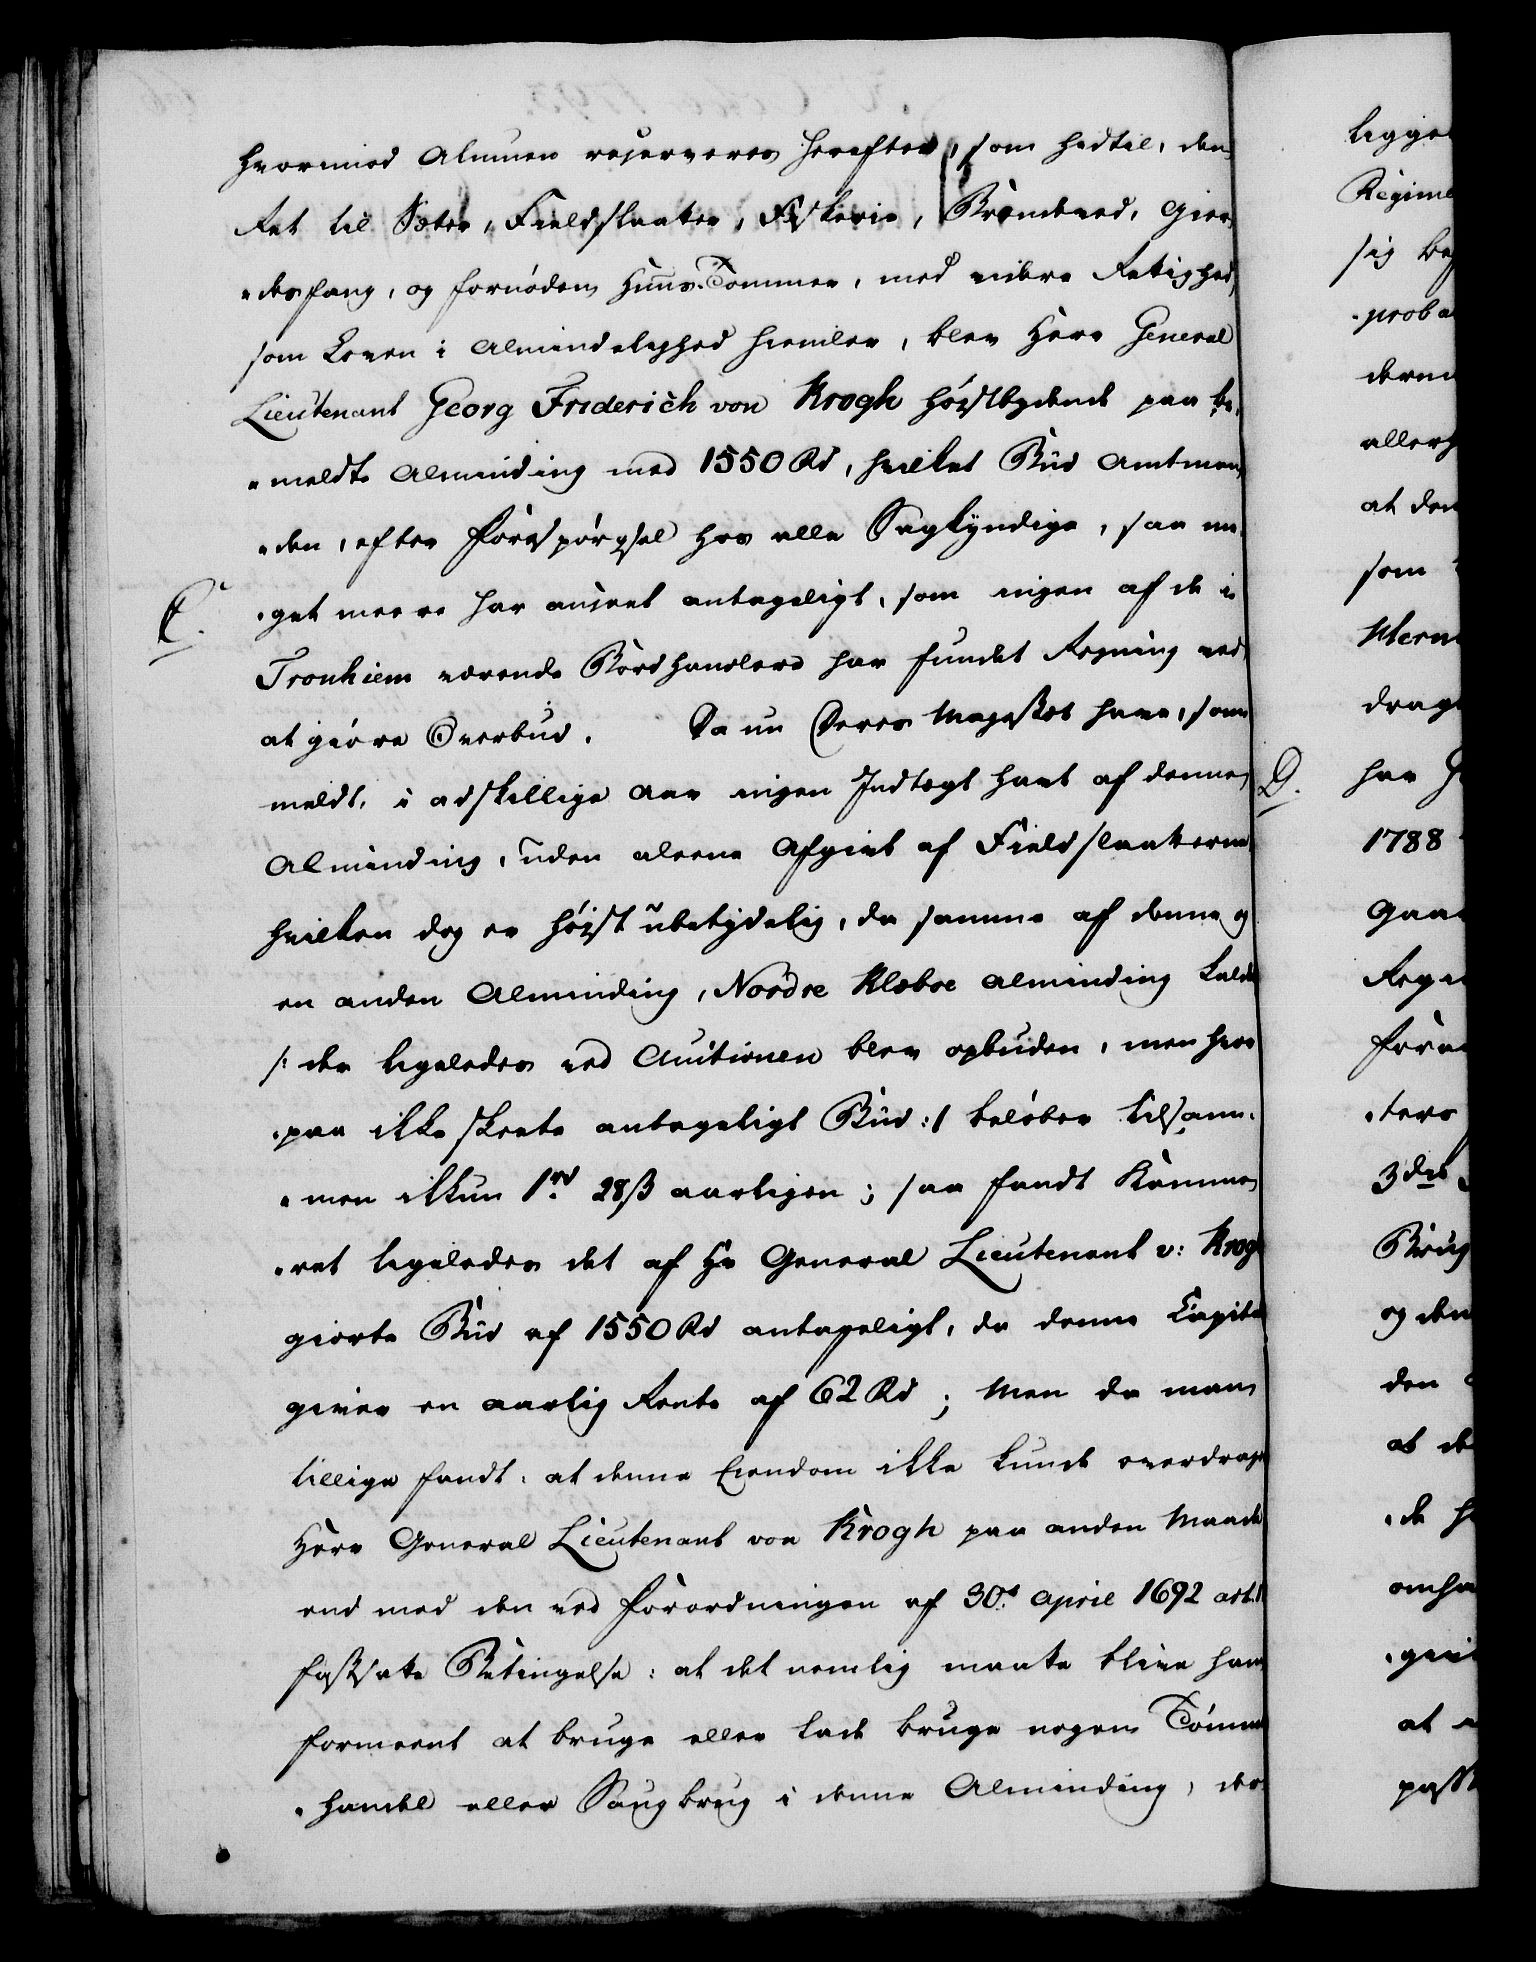 hvormed Almuen reserveres herefter, som hidtil, den
Ret til Sæter, Fieldslaatter, Fiskerie, Brændeved, Gier-
"desfang, og fornøden Huus-Tømmer, med videre Retighed,
som Loven i Almindelighed hiemler, blev Herr General
Lieutenant Georg Friderich von Krogh høistbydende paa be-
"meldte Alminding med 1550 Rd, hvilket Bud Amtman-
"den, efter Forespørgsel hos alle Sagkyndige, saa me-
"get meere har anseet antageligt, som ingen af de i
C.
Tronhiem værende Bordhandlere har fundet Regning ved
at giøre Overbud. Da nu Deres Majestæt have, som
meldt, i adskillige Aar ingen Indtægt havt af denne
Alminding, uden alene Afgivt af Fieldslaatterne
hvilken dog er høist ubetydelig, da samme af denne og
en anden Alminding, Nordre Klæboe Alminding kaldet
/: der ligeledes ved Auctionen blev opbuden, men hvor-
"paa ikke skeete antageligt Bud :/ beløber tilsam-
"men ikkun 1rd 28ß aarligen; saa fandt Kamme-
"ret ligeledes det af Hr General Lieutenant v: Krogh
giorte Bud af 1550 Rd antageligt, da denne Capital
giver en aarlig Rente af 62 Rd; Men da man
tillige fandt: at denne Eiendom ikke kunde overdrages
Herr General Lieutenant von Krogh paa anden Maade
end med den ved Forordningen af 30t April 1692 art. 1
fastsatte Betingelse: at det nemlig maatte blive ham
formeent at bruge eller lade bruge nogen Tømmer-
"handel eller Saugbrug i denne Alminding, der-
ligge
Regime
sig be
"proba
derm
allerh
at den
som
Mern
drag
D.
har G
1788
Gaar
Regi
foru
"ters
3die
Brug
og den
den
at de
"de h
omha
"give
at
passe